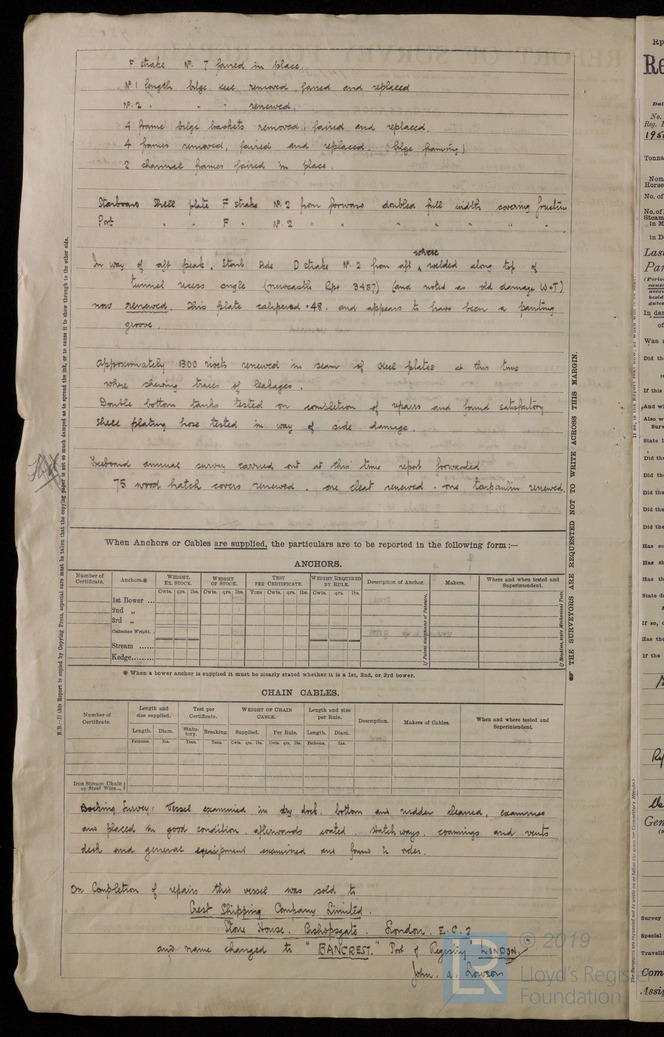 F strake No. 7 faired in place.
No 1 length bilge keel removed, faired and replaced
No. 2 " " " renewed.
4 frame bilge brackets removed, faired and replaced.
4 frames removed, faired and replaced. (bilge framing)
2 channel frames faired in place.
Starboard Shell plate F strake No. 2 from forward doubled full width covering
Port " " F " No. 2 " " " " " "
In way of aft peak. Starb side D strake No. 2 from aft where welded along top of
tunnel recess angle (Newcastle Rpt 3487) (and noted as old damage W&T)
now renewed. This plate calipered .48. and appears to have been a panting
groove.
Approximately 1300 rivets renewed in seam of keel plates at this time
where shewing traces of leakages.
Double bottom tanks tested on completion of repairs and found satisfactory
Shell plating hose tested in way of side damage.
Freeboard annual survey carried out at this time report forwarded
75 wood hatch covers renewed. one cleat renewed. one tarpaulin renewed.
When Anchors or Cables are supplied, the particulars are to be reported in the following form:—
ANCHORS.
Number of Certificate. Anchors.* WEIGHT, EX. STOCK. WEIGHT OF STOCK. TEST PER CERTIFICATE. WEIGHT REQUIRED BY RULE. Description of Anchor. Makers. Where and when tested and Superintendent.
Cwts. qrs. lbs. Cwts. qrs. lbs. Tons Cwts. qrs. lbs. Cwts. qrs. lbs.
1st Bower ...
2nd "
3rd "
Collective Weight.
Stream ......
Kedge.........
* When a bower anchor is supplied it must be clearly stated whether it is a 1st, 2nd, or 3rd bower.
CHAIN CABLES.
Number of Certificate. Length and size supplied. Test per Certificate. WEIGHT OF CHAIN CABLE. Length and size per Rule. Description. Makers of Cables. When and where tested and Superintendent.
Length. Diam. Statutory. Breaking. Supplied. Per Rule. Length. Diam.
Fathoms. Ins. Tons. Tons. Cwts. qrs. lbs. Cwts. qrs. lbs. Fathoms. Ins.
Iron Stream Chain or Steel Wire...
Docking Survey: Vessel examined in dry dock. bottom and rudder cleaned, examined
and placed in good condition. afterwards coated. Hatchways, coamings and vents
deck and general equipment examined and found in order.
On Completion of repairs this vessel was sold to
Crest Shipping Company Limited.
Stone House. Bishopsgate. London. E.C.2
and name changed to "BANCREST." Port of Registry LONDON.
John. A. Lowson
N.B.—If this Report is copied by Copying Press, especial care must be taken that the copying paper is not so much damped as to spread the ink, or to cause it to show through to the other side.
THE SURVEYORS ARE REQUESTED NOT TO WRITE ACROSS THIS MARGIN.
© 2019
Lloyd's Regis
Foundation